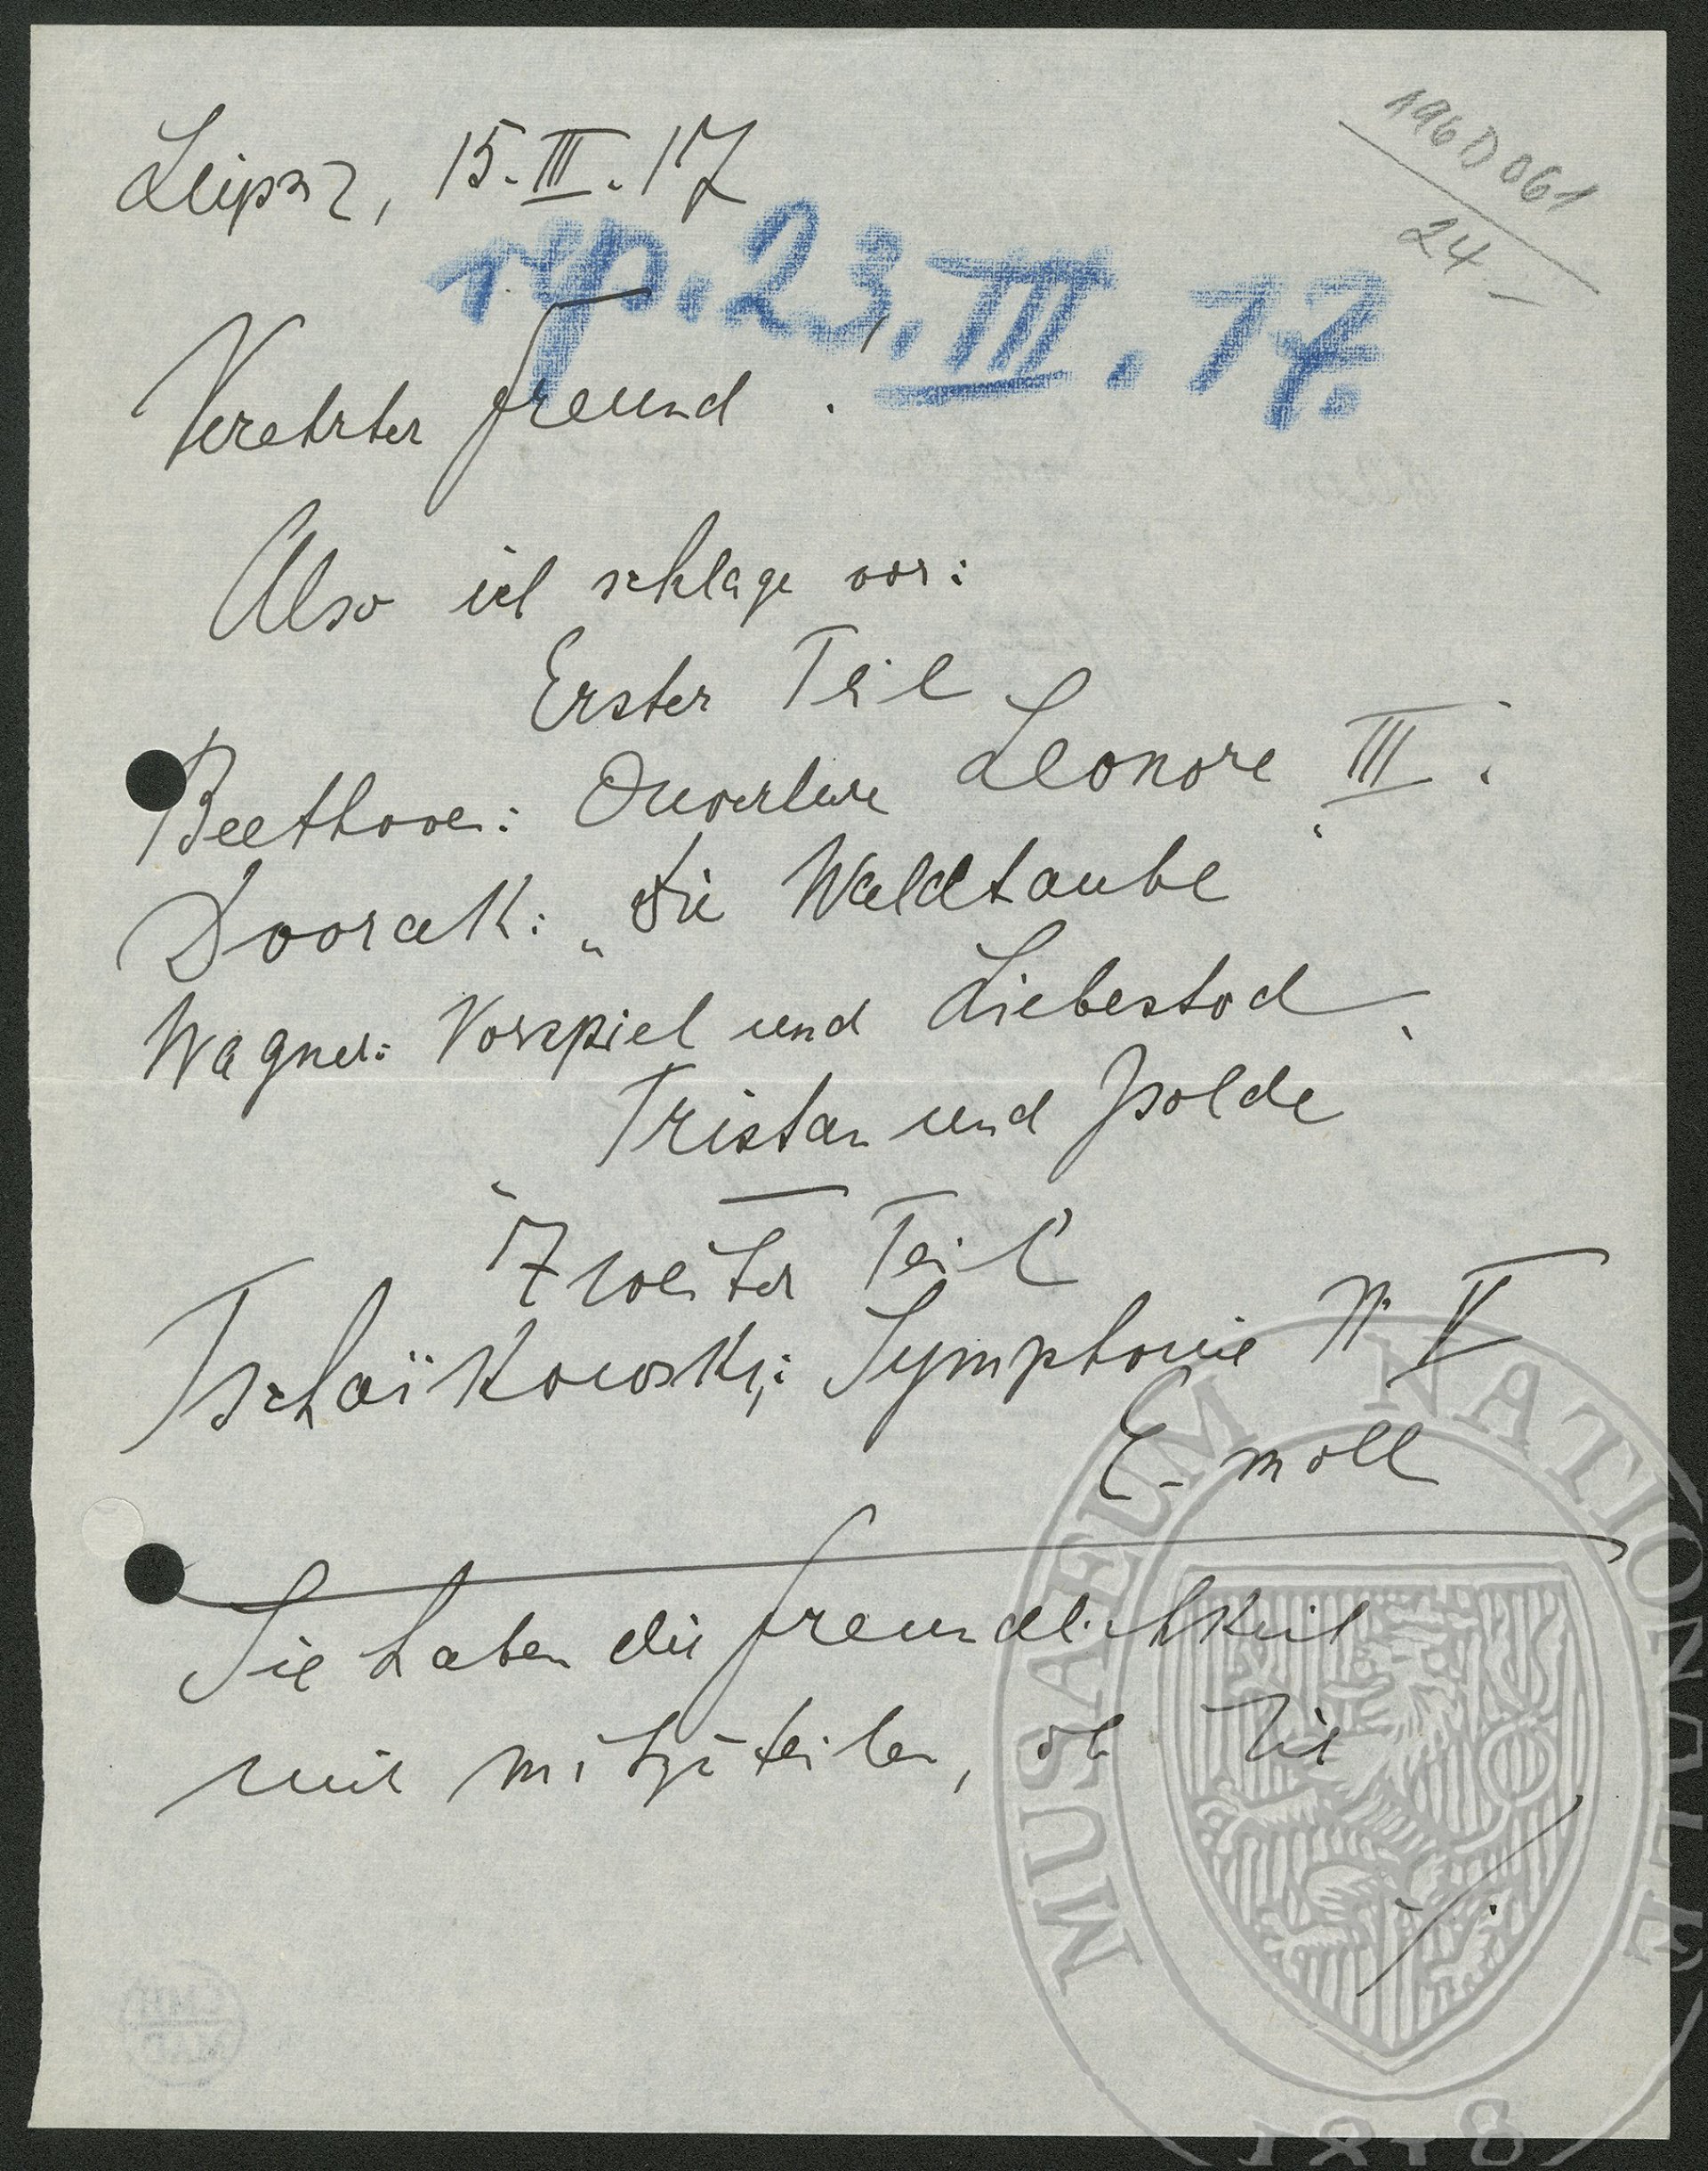 Leipzig, 15.III.17
196D061
24
rep. 23.III.17.
Verehrter Freund!
Also ich schlage vor:
Erster Teil
Beethoven: Ouverture Leonore III.
Dvorak: „Die Waldtaube“
Wagner: Vorspiel und Liebestod
Tristan und Isolde
Zweiter Teil
Tschaïkowski: Symphonie Nr V
E-moll
Sie haben die Freundlichkeit
mir mitzuteilen, ob Sie
./.
MUSAEUM NATIONALE
1818
ČMH
MAD